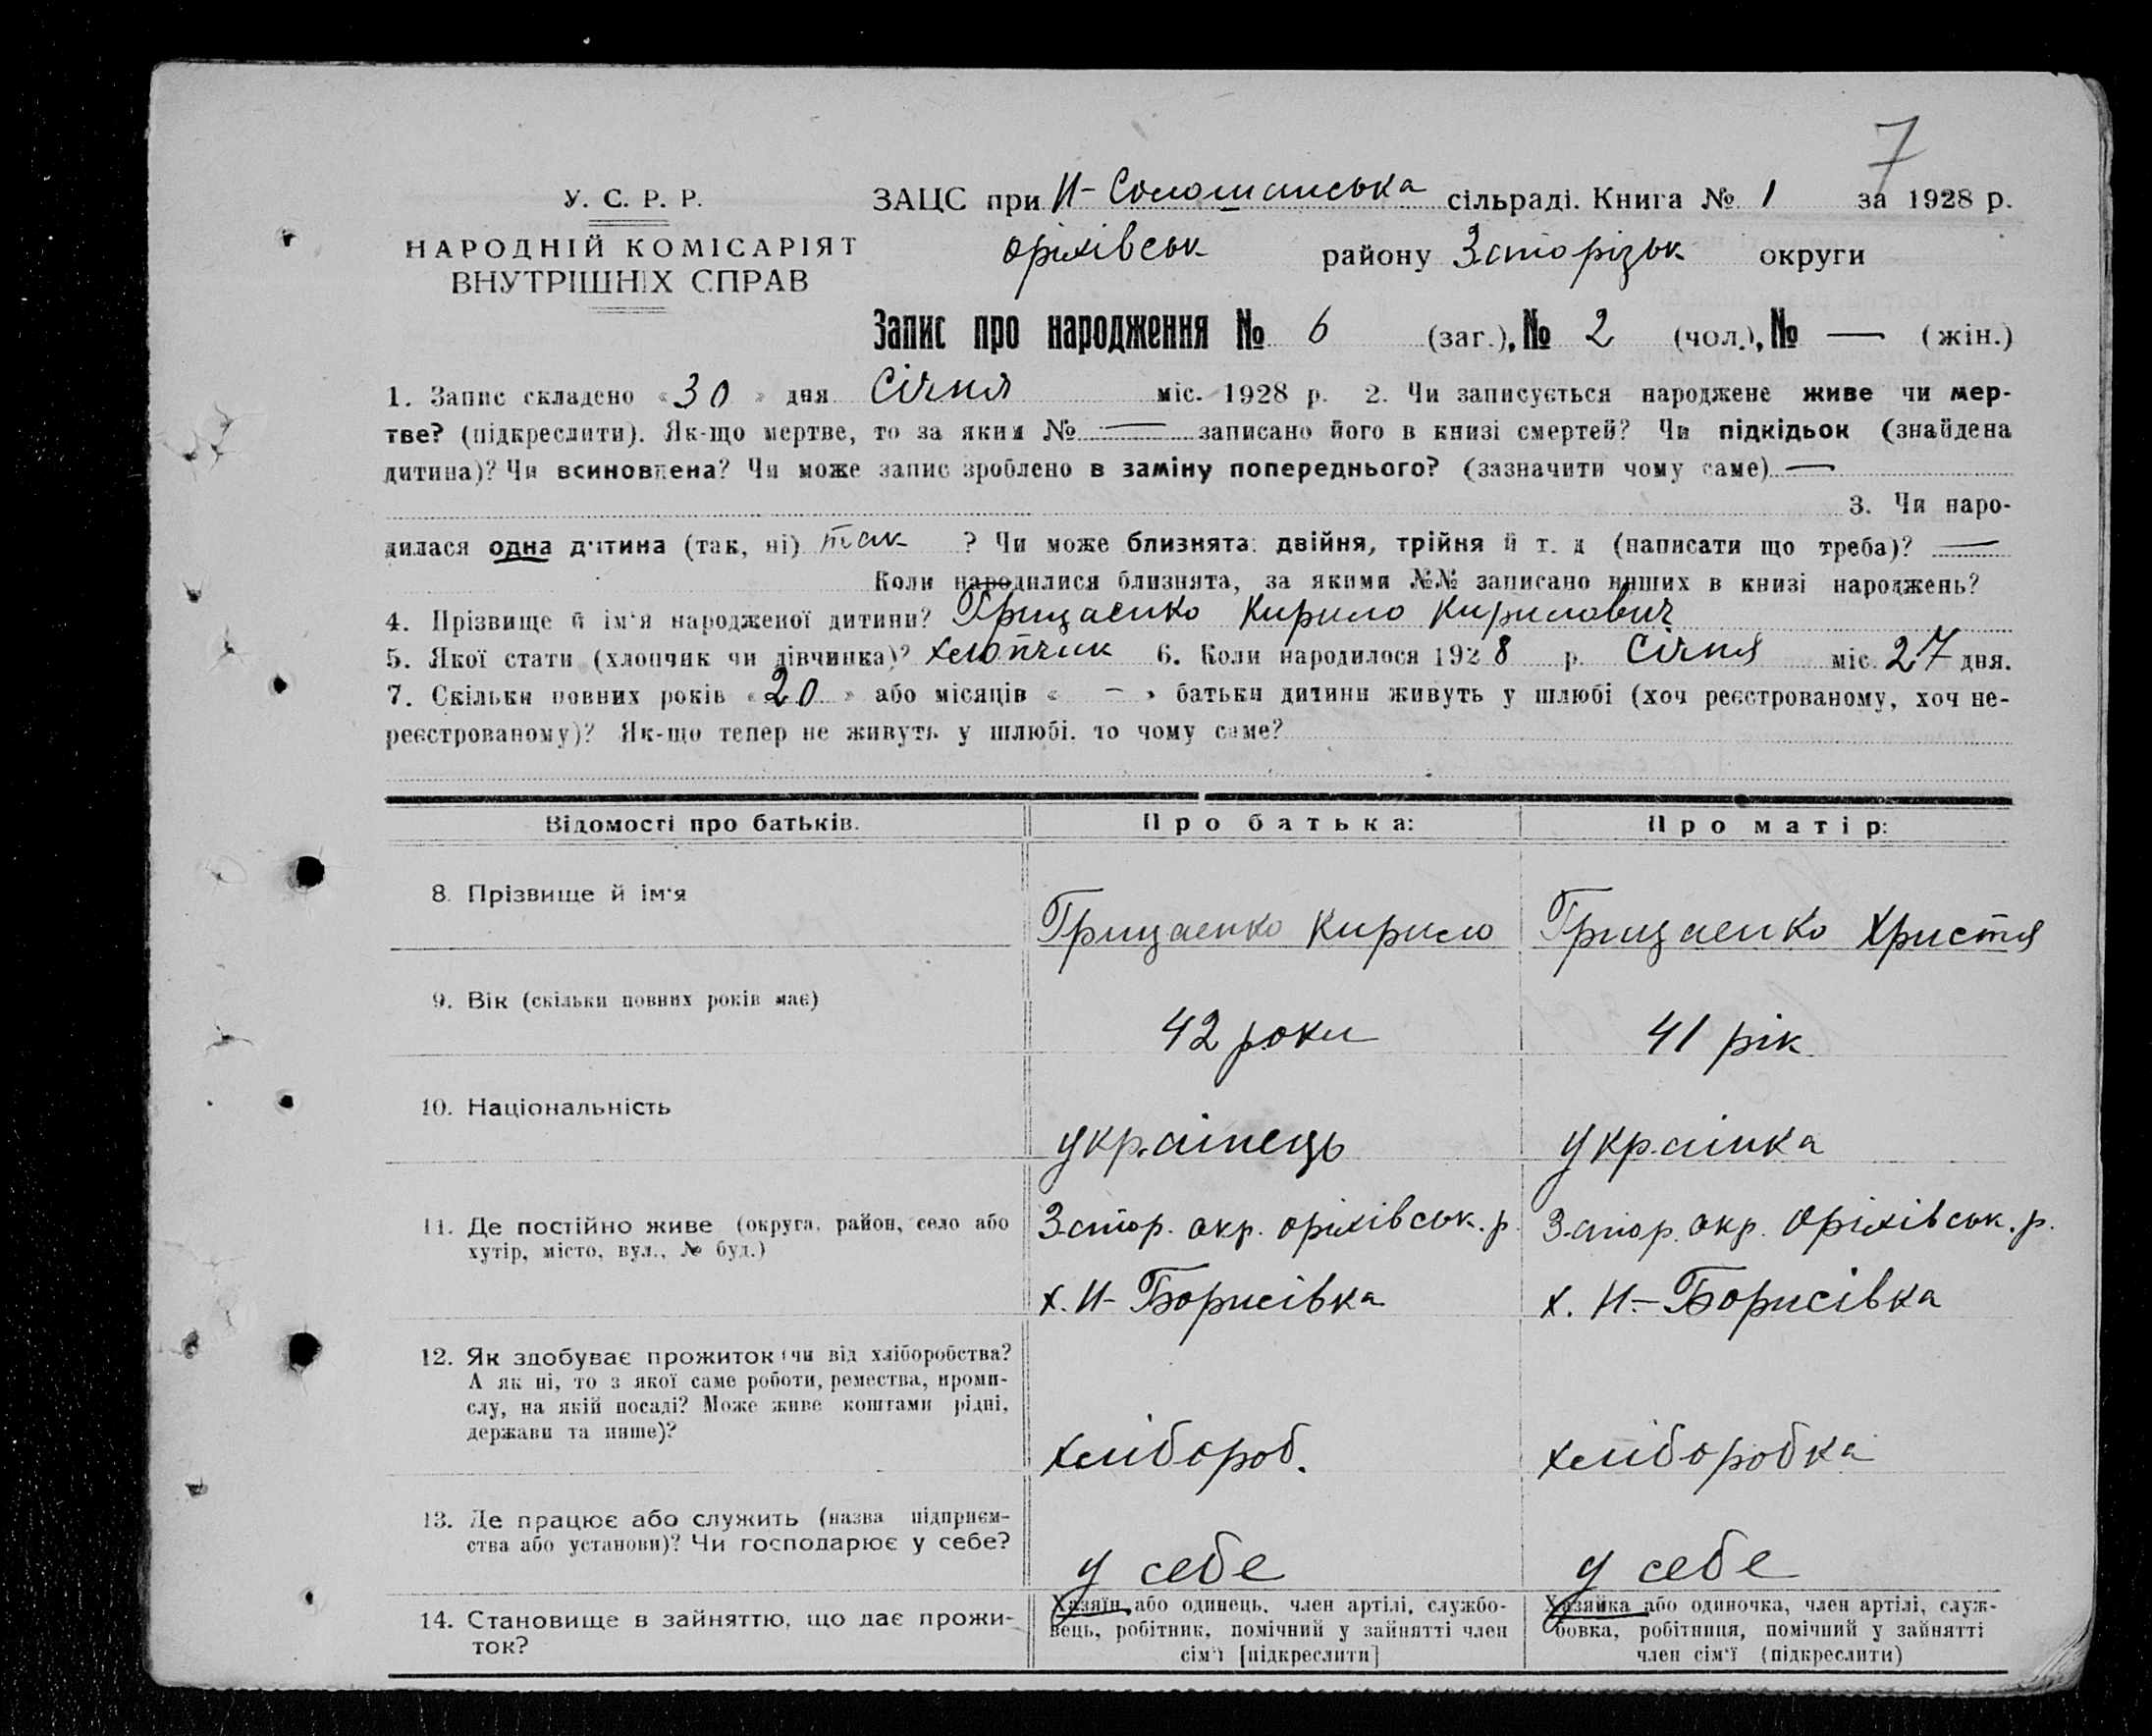 7
У. С. Р. Р.
НАРОДНІЙ КОМІСАРІЯТ
ВНУТРІШНІХ СПРАВ
ЗАЦС при сільраді. Книга № 1 за 1928 р.
Оріхівськ району Запорізьк округи
Запис про народження № 6 (заг.), № 2 (чол.), № — (жін.)
1. Запис складено «30» дня Січня міс. 1928 р. 2. Чи записується народжене живе чи мер-
тве? (підкреслити). Як-що мертве, то за яким № — записано його в книзі смертей? Чи підкідьок (знайдена
дитина)? Чи всиновлена? Чи може запис зроблено в заміну попереднього? (зазначити чому саме) —
3. Чи наро-
дилася одна дитина (так, ні) так ? Чи може близнята: двійня, трійня й т. д (написати що треба)? —
Коли народилися близнята, за якими №№ записано инших в книзі народжень?
4. Прізвище й ім'я народженої дитини? Грицаенко Кирило Кирилович
5. Якої стати (хлопчик чи дівчинка)? хлопчик 6. Коли народилося 1928 р. Січня міс. 27 дня.
7. Скільки повних років «20» або місяців « - » батьки дитини живуть у шлюбі (хоч реєстрованому, хоч не-
реєстрованому)? Як-що тепер не живуть у шлюбі, то чому саме?
Відомості про батьків. Про батька: Про матір:
8. Прізвище й ім'я Грицаенко Кирило Грицаенко Христя
9. Вік (скільки повних років має) 42 роки 41 рік
10. Національність українець українка
11. Де постійно живе (округа, район, село або
хутір, місто, вул., № буд.)
Запор. окр. Оріхівськ. р. Запор. окр. Оріхівськ. р.
х. Н-Борисівка х. Н.-Борисівка
12. Як здобуває прожиток (чи від хліборобства?
А як ні, то з якої саме роботи, ремества, проми-
слу, на якій посаді? Може живе коштами рідні,
держави та инше)?
хлібороб. хліборобка
13. Де працює або служить (назва підприєм-
ства або установи)? Чи господарює у себе?
у себе у себе
14. Становище в зайняттю, що дає прожи-
ток?
Хазяїн або одинець, член артілі, службо-
вець, робітник, помічний у зайнятті член
сім'ї [підкреслити]
Хазяйка або одиночка, член артілі, служ-
бовка, робітниця, помічний у зайнятті
член сім'ї (підкреслити)